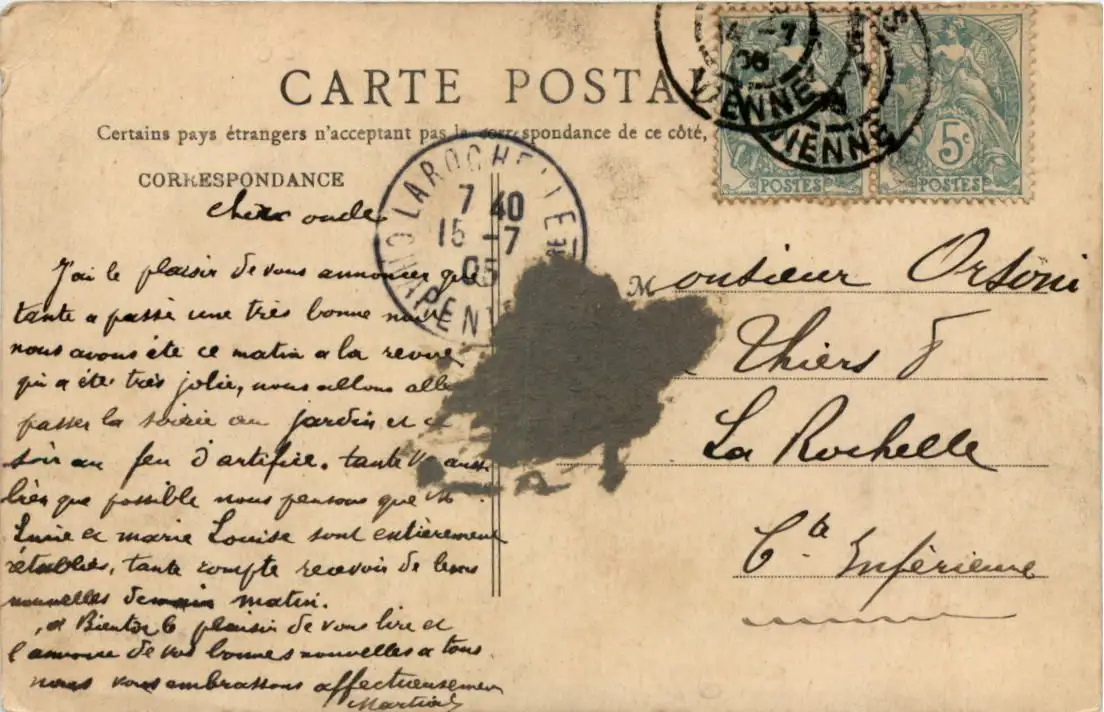 CARTE POSTA
Certains pays étrangers n'acceptant pas la correspondance de ce côté,
CORRESPONDANCE
cher oncle
J'ai le plaisir de vous annoncer que
tante a passé une très bonne nuit
nous avons été ce matin a la revue
qui a été très jolie, nous allons alle
passer la soirée au jardin et ce
soir au feu d'artifice. tante va aussi
bien que possible nous pensons que
Lucie et marie Louise sont entièrement
rétablies, tante compte recevoir de leurs
nouvelles demain matin.
a Bientot le plaisir de vous lire et
l'annonce de vos bonnes nouvelles a tous
nous vous embrassons affectueusement
Martial
LA ROCHELLE
7 40
15 -7
05
CHARENTE
14 -7
VIENNE
VIENNE
5c
POSTES
POSTES
Monsieur Orsoni
Thiers 8
La Rochelle
Cte Inférieure